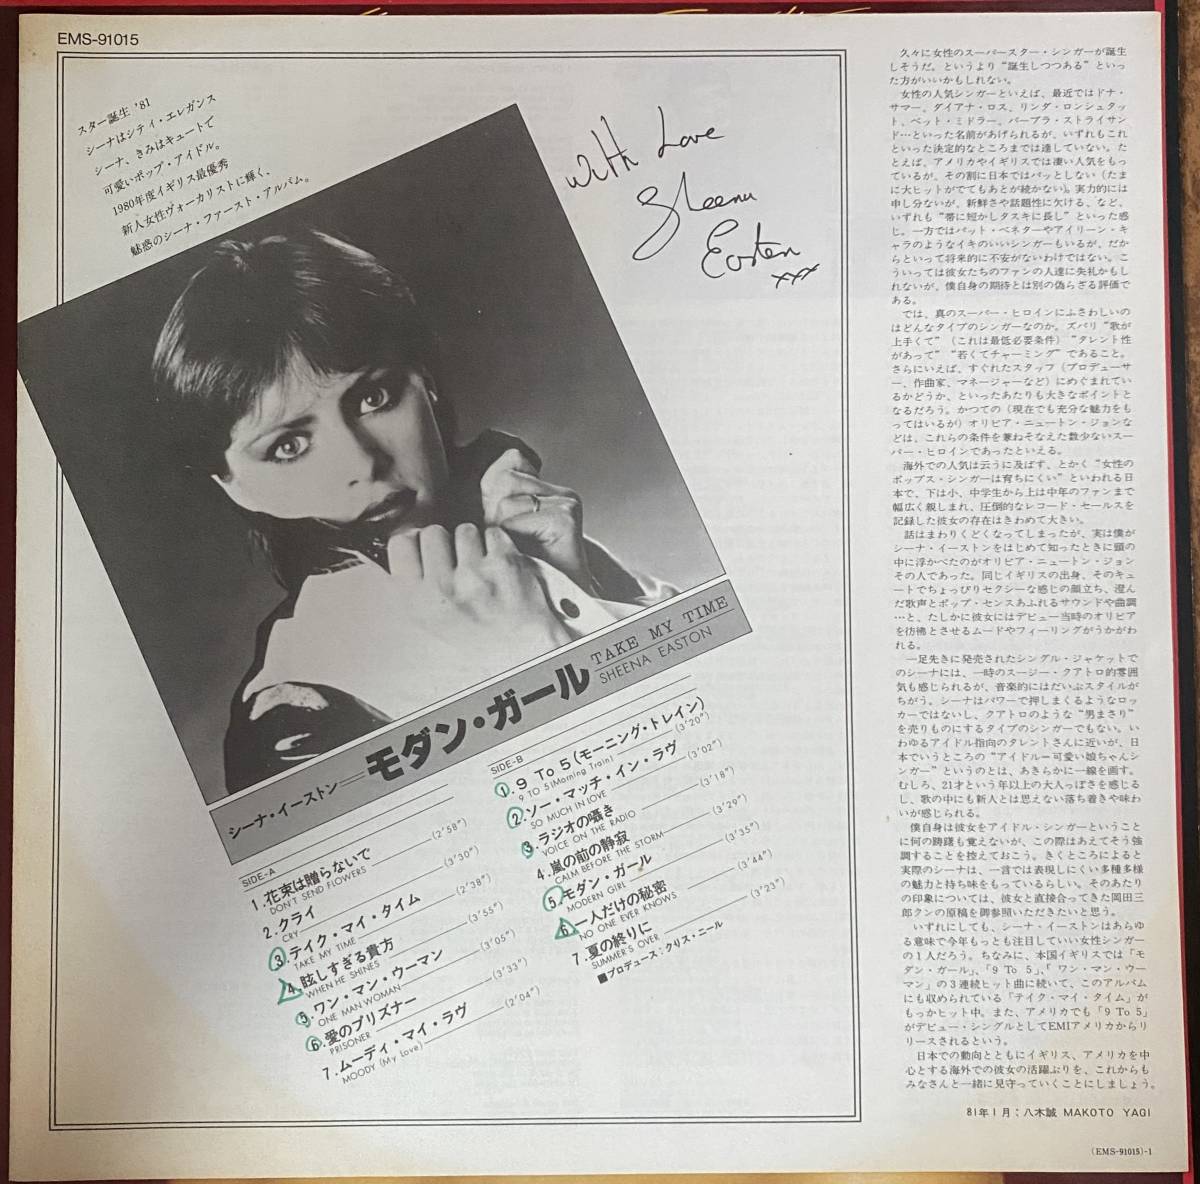 EMS-91015
スター誕生 '81
シーナはシティ・エレガンス
シーナ、きみはキュートで
可愛いポップ・アイドル。
1980年度イギリス最優秀
新人女性ヴォーカリストに輝く、
魅惑のシーナ・ファースト・アルバム。
With Love
Sheena
Easton
xxx
シーナ・イーストン＝モダン・ガール
TAKE MY TIME
SHEENA EASTON
SIDE-A
1.花束は贈らないで (2'58")
DON'T SEND FLOWERS
2.クライ (3'30")
CRY
3.テイク・マイ・タイム (2'38")
TAKE MY TIME
4.眩しすぎる貴方 (3'55")
WHEN HE SHINES
5.ワン・マン・ウーマン (3'05")
ONE MAN WOMAN
6.愛のプリズナー (3'33")
PRISONER
7.ムーディ・マイ・ラヴ (2'04")
MOODY (My Love)
SIDE-B
1.9 To 5(モーニング・トレイン) (3'20")
9 TO 5(Morning Train)
2.ソー・マッチ・イン・ラヴ (3'02")
SO MUCH IN LOVE
3.ラジオの囁き (3'18")
VOICE ON THE RADIO
4.嵐の前の静寂 (3'29")
CALM BEFORE THE STORM
5.モダン・ガール (3'35")
MODERN GIRL
6.一人だけの秘密 (3'44")
NO ONE EVER KNOWS
7.夏の終りに (3'23")
SUMMER'S OVER
■プロデュース：クリス・ニール
久々に女性のスーパースター・シンガーが誕生
しそうだ。というより“誕生しつつある”といっ
た方がいいかもしれない。
女性の人気シンガーといえば、最近ではドナ・
サマー、ダイアナ・ロス、リンダ・ロンシュタッ
ト、ベット・ミドラー、バーブラ・ストライサン
ド…といった名前があげられるが、いずれもこれ
といった決定的なところまでは達していない。た
とえば、アメリカやイギリスでは凄い人気をもっ
ているが、その割に日本ではパッとしない(たま
に大ヒットがでてもあとが続かない)。実力的には
申し分ないが、新鮮さや話題性に欠ける、など、
いずれも“帯に短かしタスキに長し”といった感
じ。一方ではパット・ベネターやアイリーン・キ
ャラのようなイキのいいシンガーもいるが、だか
らといって将来的に不安がないわけではない。こ
ういっては彼女たちのファンの人達に失礼かもし
れないが、僕自身の期待とは別の偽らざる評価で
ある。
では、真のスーパー・ヒロインにふさわしいの
はどんなタイプのシンガーなのか。ズバリ“歌が
上手くて”（これは最低必要条件）“タレント性
があって”“若くてチャーミング”であること。
さらにいえば、すぐれたスタッフ（プロデューサ
ー、作曲家、マネージャーなど）にめぐまれてい
るかどうか、といったあたりも大きなポイントと
なるだろう。かつての（現在でも充分な魅力をも
ってはいるが）オリビア・ニュートン・ジョンな
どは、これらの条件を兼ねそなえた数少ないスー
パー・ヒロインであったといえる。
海外での人気は云うに及ばず、とかく“女性の
ポップス・シンガーは育ちにくい”といわれる日
本で、下は小、中学生から上は中年のファンまで
幅広く親しまれ、圧倒的なレコード・セールスを
記録した彼女の存在はきわめて大きい。
話はまわりくどくなってしまったが、実は僕が
シーナ・イーストンをはじめて知ったときに頭の
中に浮かべたのがオリビア・ニュートン・ジョン
その人であった。同じイギリスの出身、そのキュ
ートでちょっぴりセクシーな感じの顔立ち、澄ん
だ歌声とポップ・センスあふれるサウンドや曲調
…と、たしかに彼女にはデビュー当時のオリビア
を彷彿とさせるムードやフィーリングがうかがわ
れる。
一足先きに発売されたシングル・ジャケットで
のシーナには、一時のスージー・クアトロ的雰囲
気も感じられるが、音楽的にはだいぶスタイルが
ちがう。シーナはパワーで押しまくるようなロッ
カーではないし、クアトロのような“男まさり”
を売りものにするタイプのシンガーでもない。い
わゆるアイドル指向のタレントさんに近いが、日
本でいうところの“アイドルー可愛い娘ちゃんシ
ンガー”というのとは、あきらかに一線を画す。
むしろ、21才という年以上の大人っぽさを感じる
し、歌の中にも新人とは思えない落ち着きや味わ
いが感じられる。
僕自身は彼女をアイドル・シンガーということ
に何の躊躇も覚えないが、この際はあえてそう強
調することを控えておこう。きくところによると
実際のシーナは、一言では表現しにくい多種多様
の魅力と持ち味をもっているらしい。そのあたり
の印象については、彼女と直接合ってきた岡田三
郎クンの原稿を御参照いただきたいと思う。
いずれにしても、シーナ・イーストンはあらゆ
る意味で今年もっとも注目していい女性シンガー
の1人だろう。ちなみに、本国イギリスでは「モ
ダン・ガール」、「9 To 5」、「ワン・マン・ウー
マン」の3連続ヒット曲に続いて、このアルバム
にも収められている「テイク・マイ・タイム」が
もっかヒット中。また、アメリカでも「9 To 5」
がデビュー・シングルとしてEMIアメリカからリ
リースされるという。
日本での動向とともにイギリス、アメリカを中
心とする海外での彼女の活躍ぶりを、これからも
みなさんと一緒に見守っていくことにしましょう。
81年1月：八木誠 MAKOTO YAGI
(EMS-91015)-1